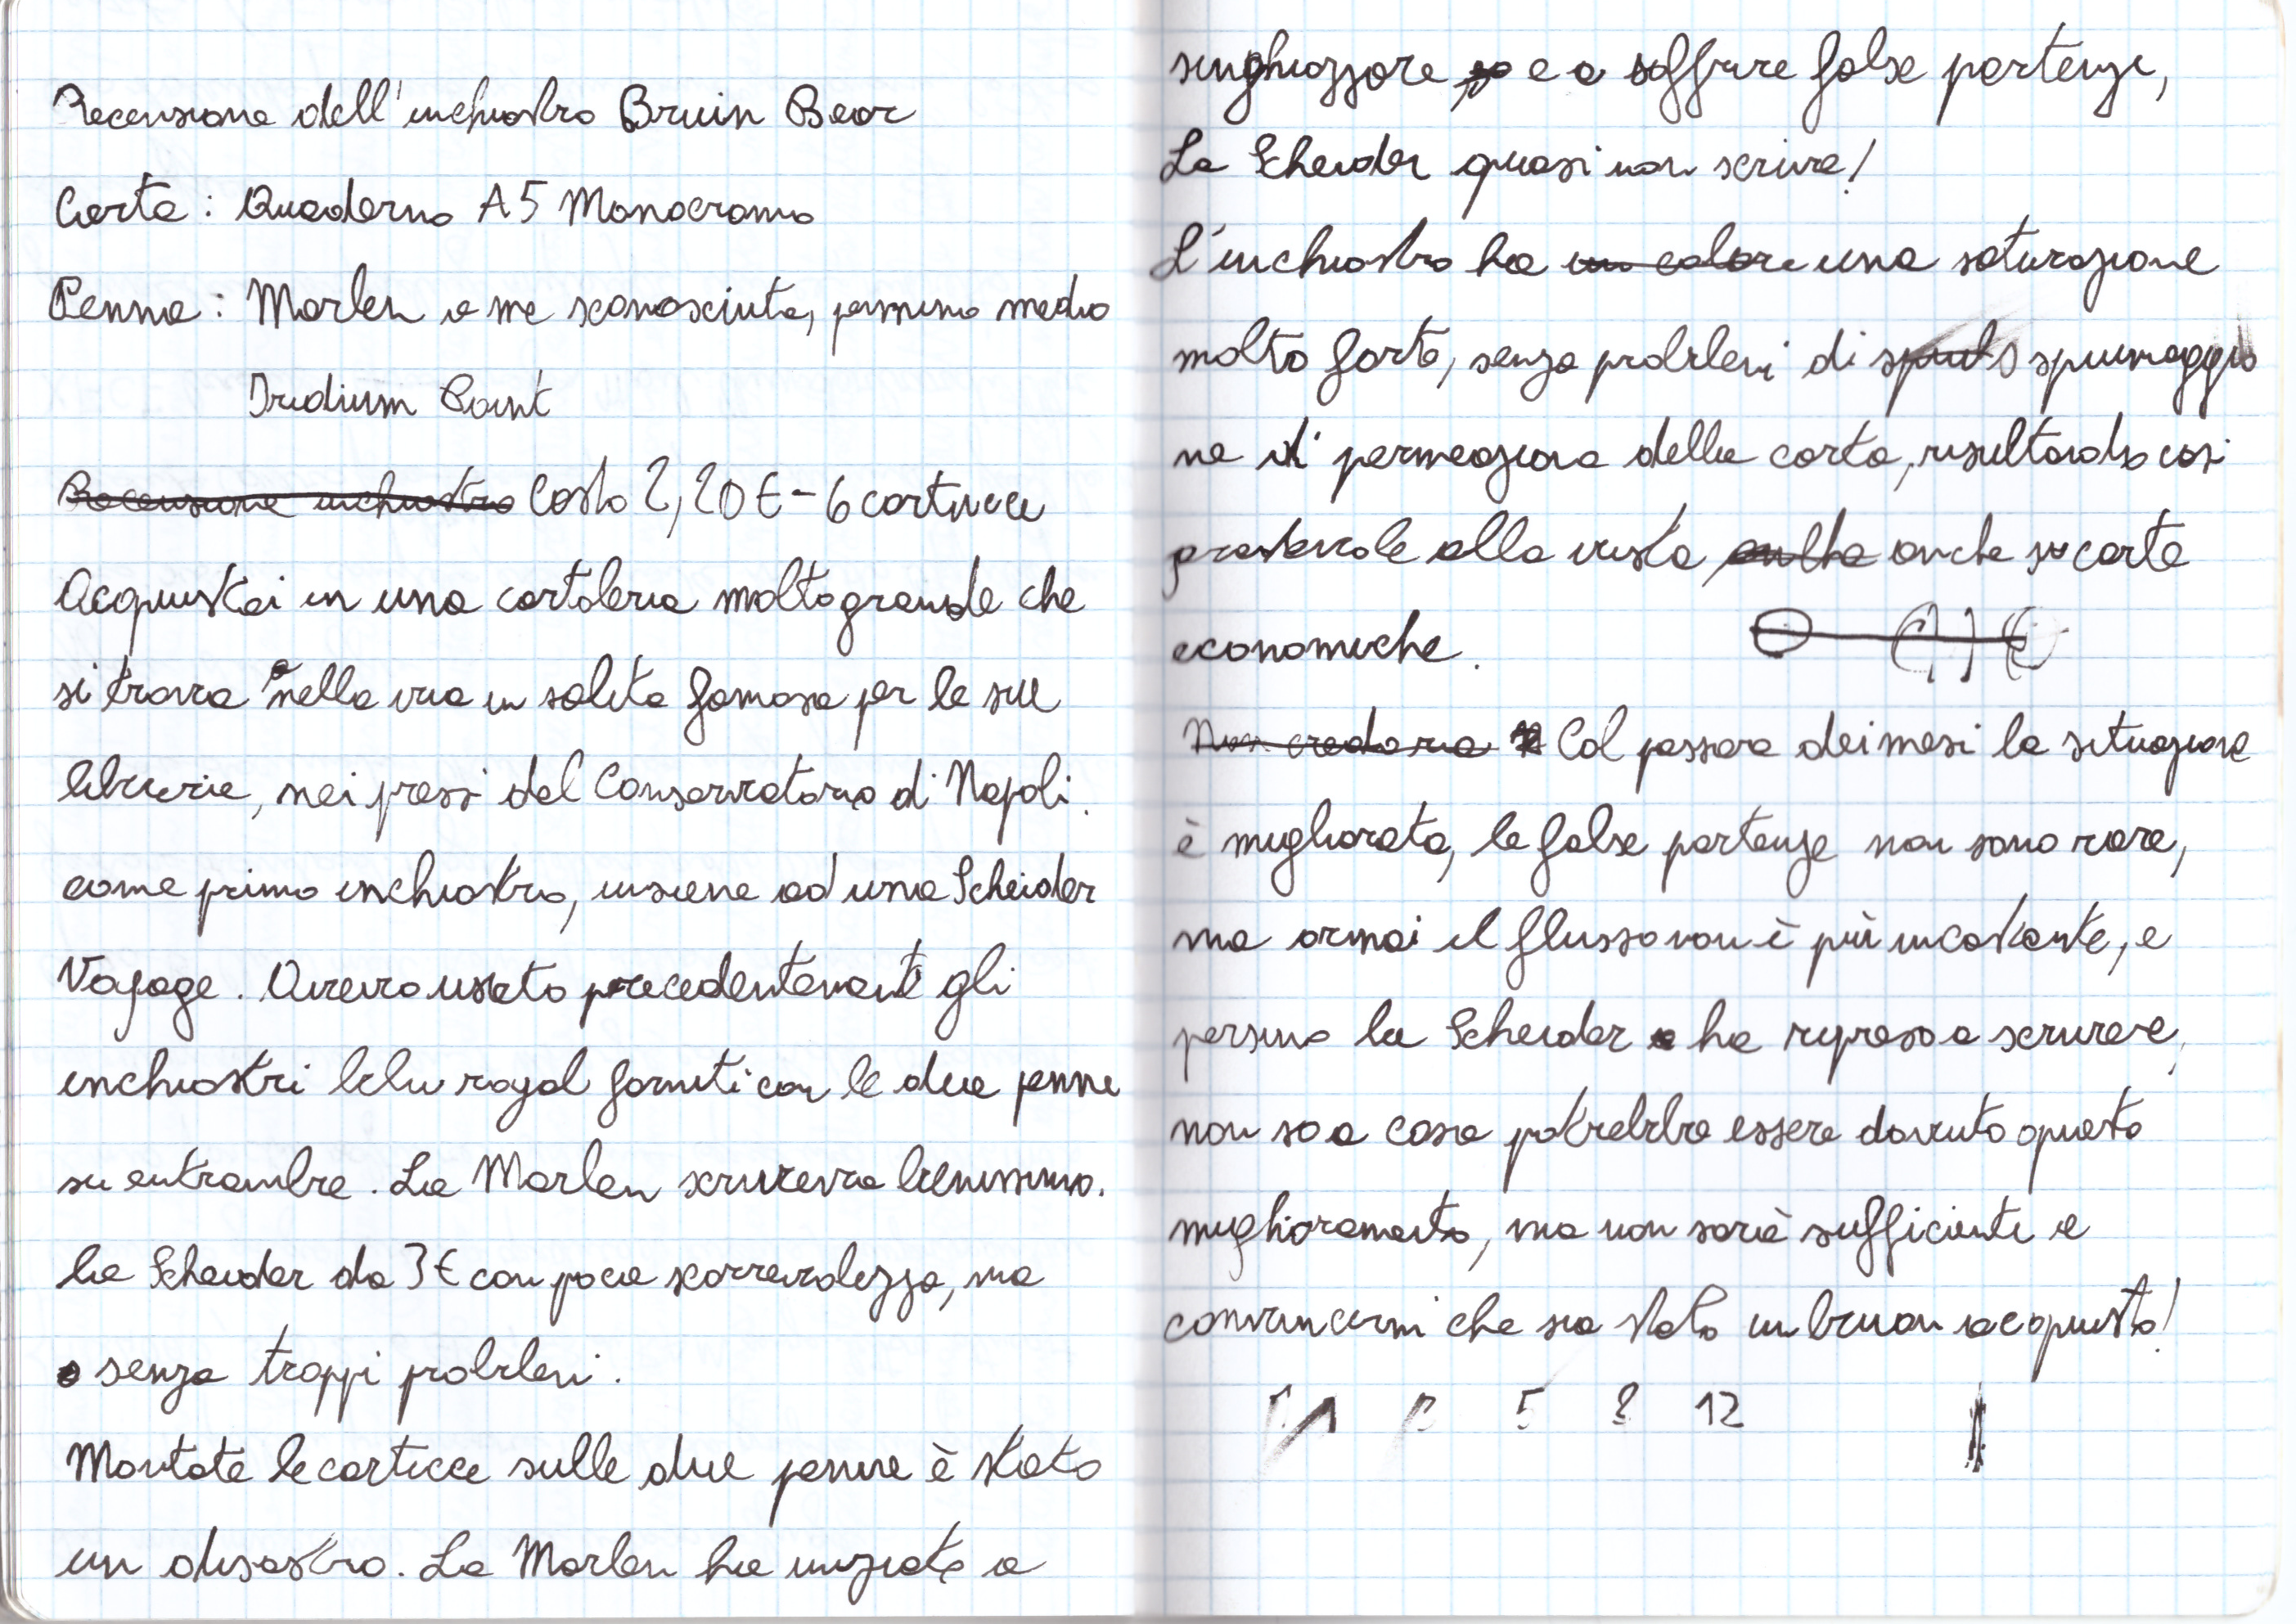 Recensione dell'inchiostro Bruin Bear
Carta: Quaderno A5 Monocromo
Penna: Marlen a me sconosciuta, pennino medio
Iridium Point
Recensione inchiostro Costo 2,20€ - 6 cartucce
Acquistai in una cartoleria molto grande che
si trova nella via in salita famosa per le sue
librerie, nei pressi del Conservatorio di Napoli.
come primo inchiostro, insieme ad una Scheider
Voyage. Avevo usato precedentemente gli
inchiostri blu royal forniti con le due penne
su entrambe. La Marlen scriveva benissimo.
la Scheider da 3€ con poca scorrevolezza, ma
senza troppi problemi.
Montate le carticce sulle due penne è stato
un disastro. La Marlen ha iniziato a
singhiozzare e a soffrire false partenze,
La Scheider quasi non scrive!
L'inchiostro ha un colore una saturazione
molto forte, senza problemi di spiumaggio
ne di permeazione della carta, risultando così
gradevole alla vista anche su carte
economiche.
Non credevo Col passare dei mesi la situazione
è migliorata, le false partenze non sono rare,
ma ormai il flusso non è più incostante, e
persino la Scheider ha ripreso a scrivere,
non so a cosa potrebbe essere dovuto questo
miglioramento, ma non sarà sufficiente a
convincermi che sia stato un buon acquisto!
5 12